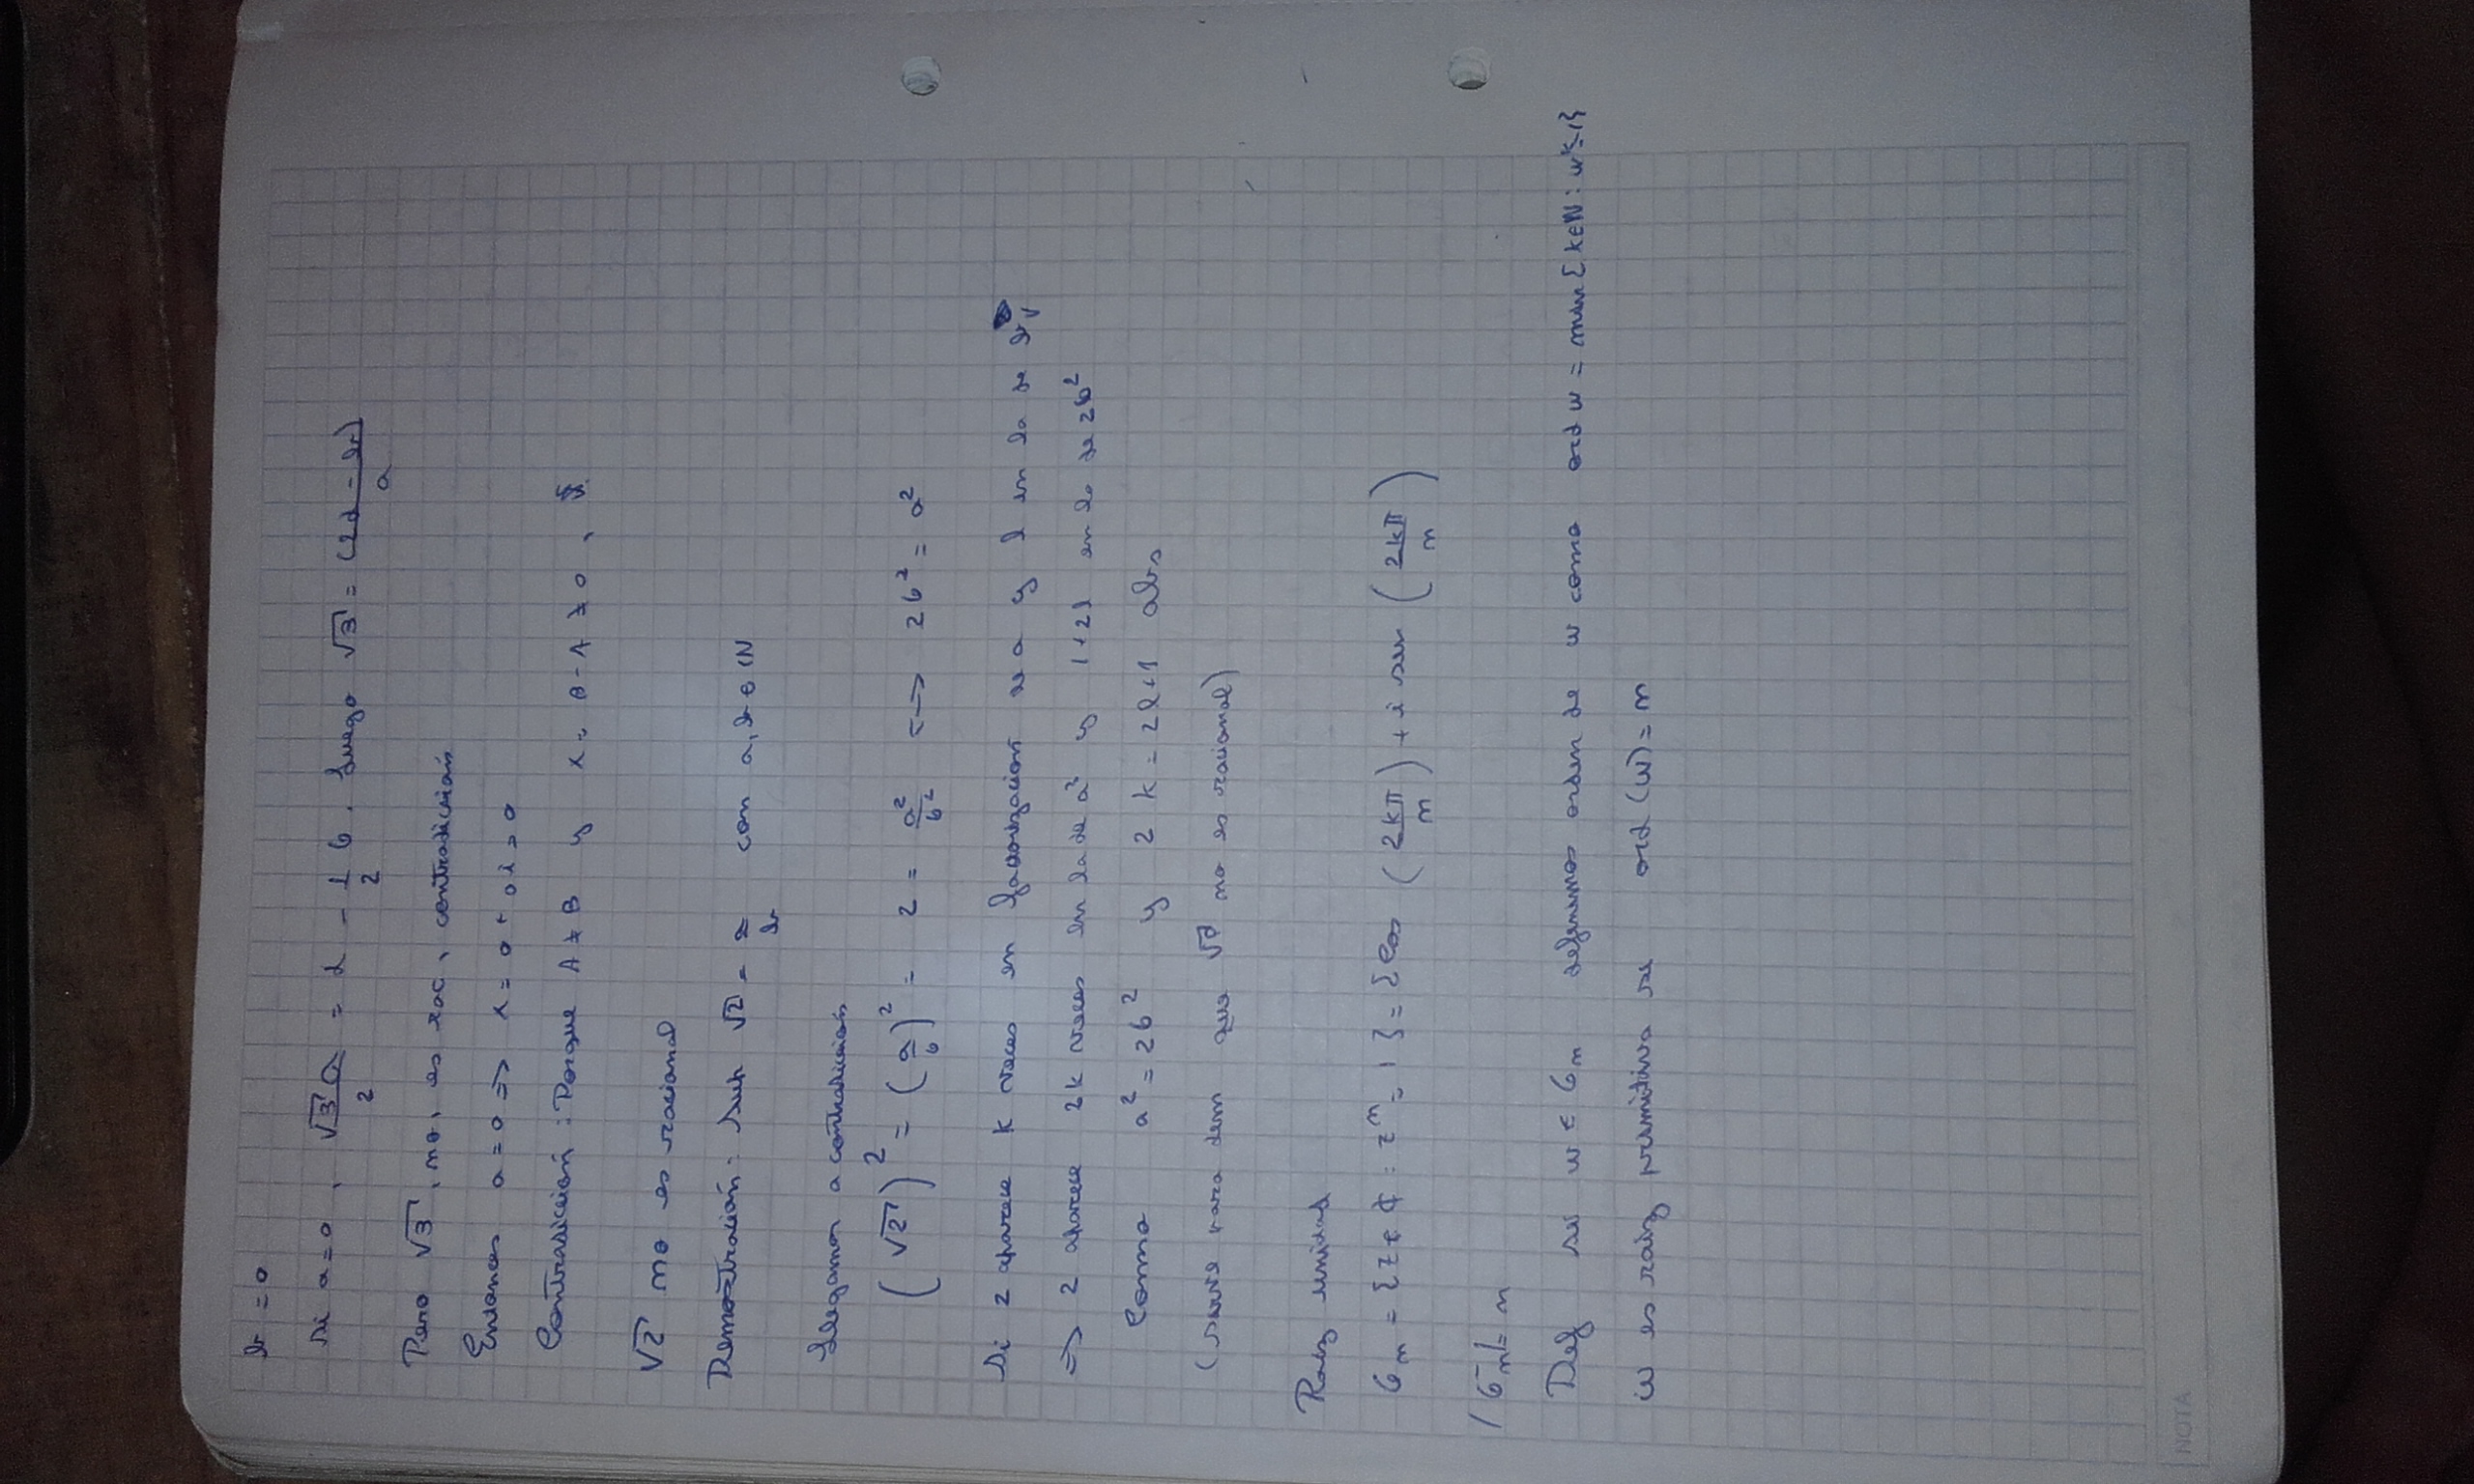 b = 0
Si a = 0, √3 a / 2 = d - 1/2 b. Luego √3 = (2d - b) / a
Pero √3, no, es rac, contradicción
Entonces a = 0 => x = 0 + 0i = 0
Contradicción: Porque A ≠ B y x = B - A ≠ 0,
√2 no es racional
Demostración: Sup √2 = a/b con a, b ∈ ℕ
Llegamos a contradicción
(√2)² = (a/b)² = 2 = a²/b² <-> 2b² = a²
Si 2 aparece k veces en factorización de a y l en la de b
=> 2 aparece 2k veces en la de a² y 1+2l en la de 2b²
Como a² = 2b² y 2k = 2l+1 abs
(sirve para dem que no es racional)
Raiz unidad
G_n = {z ∈ ℂ : z^n = 1} = {Cos (2kπ/n) + i sen (2kπ/n)
|G_n| = n
Def si w ∈ G_n definimos orden de w como ord w = min {k∈ℕ : w^k=1}
w es raiz primitiva si ord (w) = n
NOTA